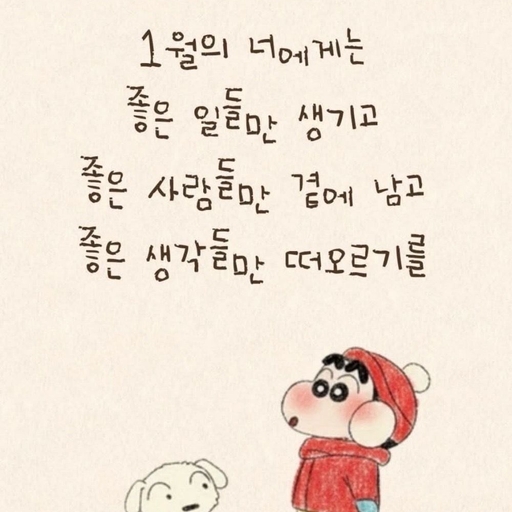 1월의 너에게는
좋은 일들만 생기고
좋은 사람들만 곁에 남고
좋은 생각들만 떠오르기를